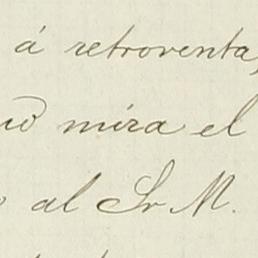 á retroventa,
mira el
al Sr M.